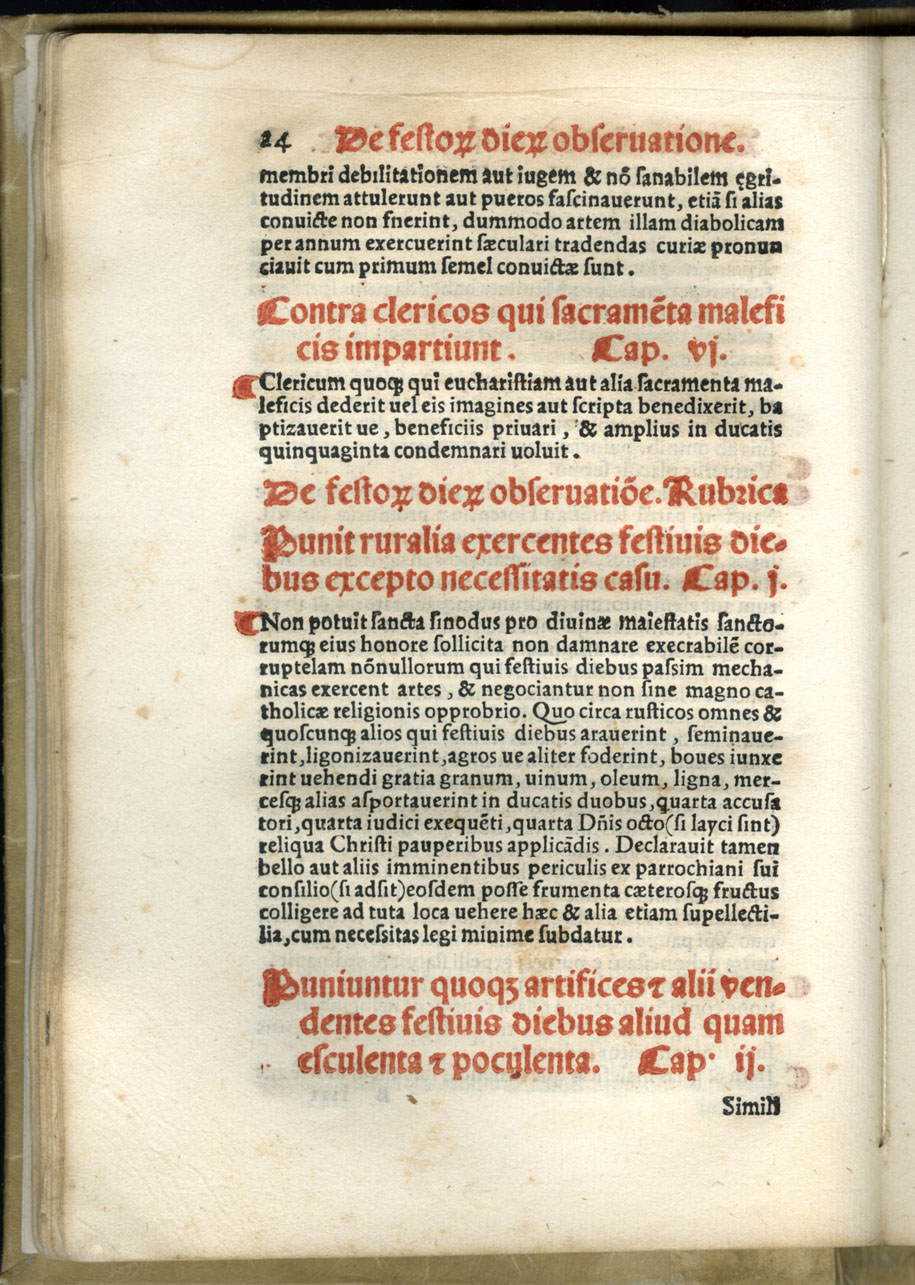 24 De festoꝝ dieꝝ obseruatione.
membri debilitationem aut iugem & nõ sanabilem ęgri-
tudinem attulerunt aut pueros fascinauerunt, etiã si alias
conuicte non fnerint, dummodo artem illam diabolicam
per annum exercuerint sæculari tradendas curiæ pronun
ciauit cum primum semel conuictæ sunt.
Contra clericos qui sacramẽta malefi
cis impartiunt. Cap. vj.
¶Clericum quoqꝫ qui eucharistiam aut alia sacramenta ma-
leficis dederit uel eis imagines aut scripta benedixerit, ba
ptizauerit ue, beneficiis priuari, & amplius in ducatis
quinquaginta condemnari uoluit.
De festoꝝ dieꝝ obseruatiõe. Rubrica
Punit ruralia exercentes festiuis die-
bus excepto necessitatis casu. Cap. j.
¶Non potuit sancta sinodus pro diuinæ maiestatis sancto-
rumqꝫ eius honore sollicita non damnare execrabilẽ cor-
ruptelam nõnullorum qui festiuis diebus passim mecha-
nicas exercent artes, & negociantur non sine magno ca-
tholicæ religionis opprobrio. Quo circa rusticos omnes &
quoscunqꝫ alios qui festiuis diebus arauerint, seminaue-
rint, ligonizauerint, agros ue aliter foderint, boues iunxe
rint uehendi gratia granum, uinum, oleum, ligna, mer-
cesqꝫ alias asportauerint in ducatis duobus, quarta accusa
tori, quarta iudici exequẽti, quarta Dñis octo (si layci sint)
reliqua Christi pauperibus applicãdis. Declarauit tamen
bello aut aliis imminentibus periculis ex parrochiani sui
consilio (si adsit) eosdem posse frumenta cæterosqꝫ fructus
colligere ad tuta loca uehere hæc & alia etiam supellecti-
lia, cum necessitas legi minime subdatur.
Puniuntur quoqꝫ artifices ⁊ alii ven-
dentes festiuis diebus aliud quam
esculenta ⁊ poculenta. Cap. ij.
Simili